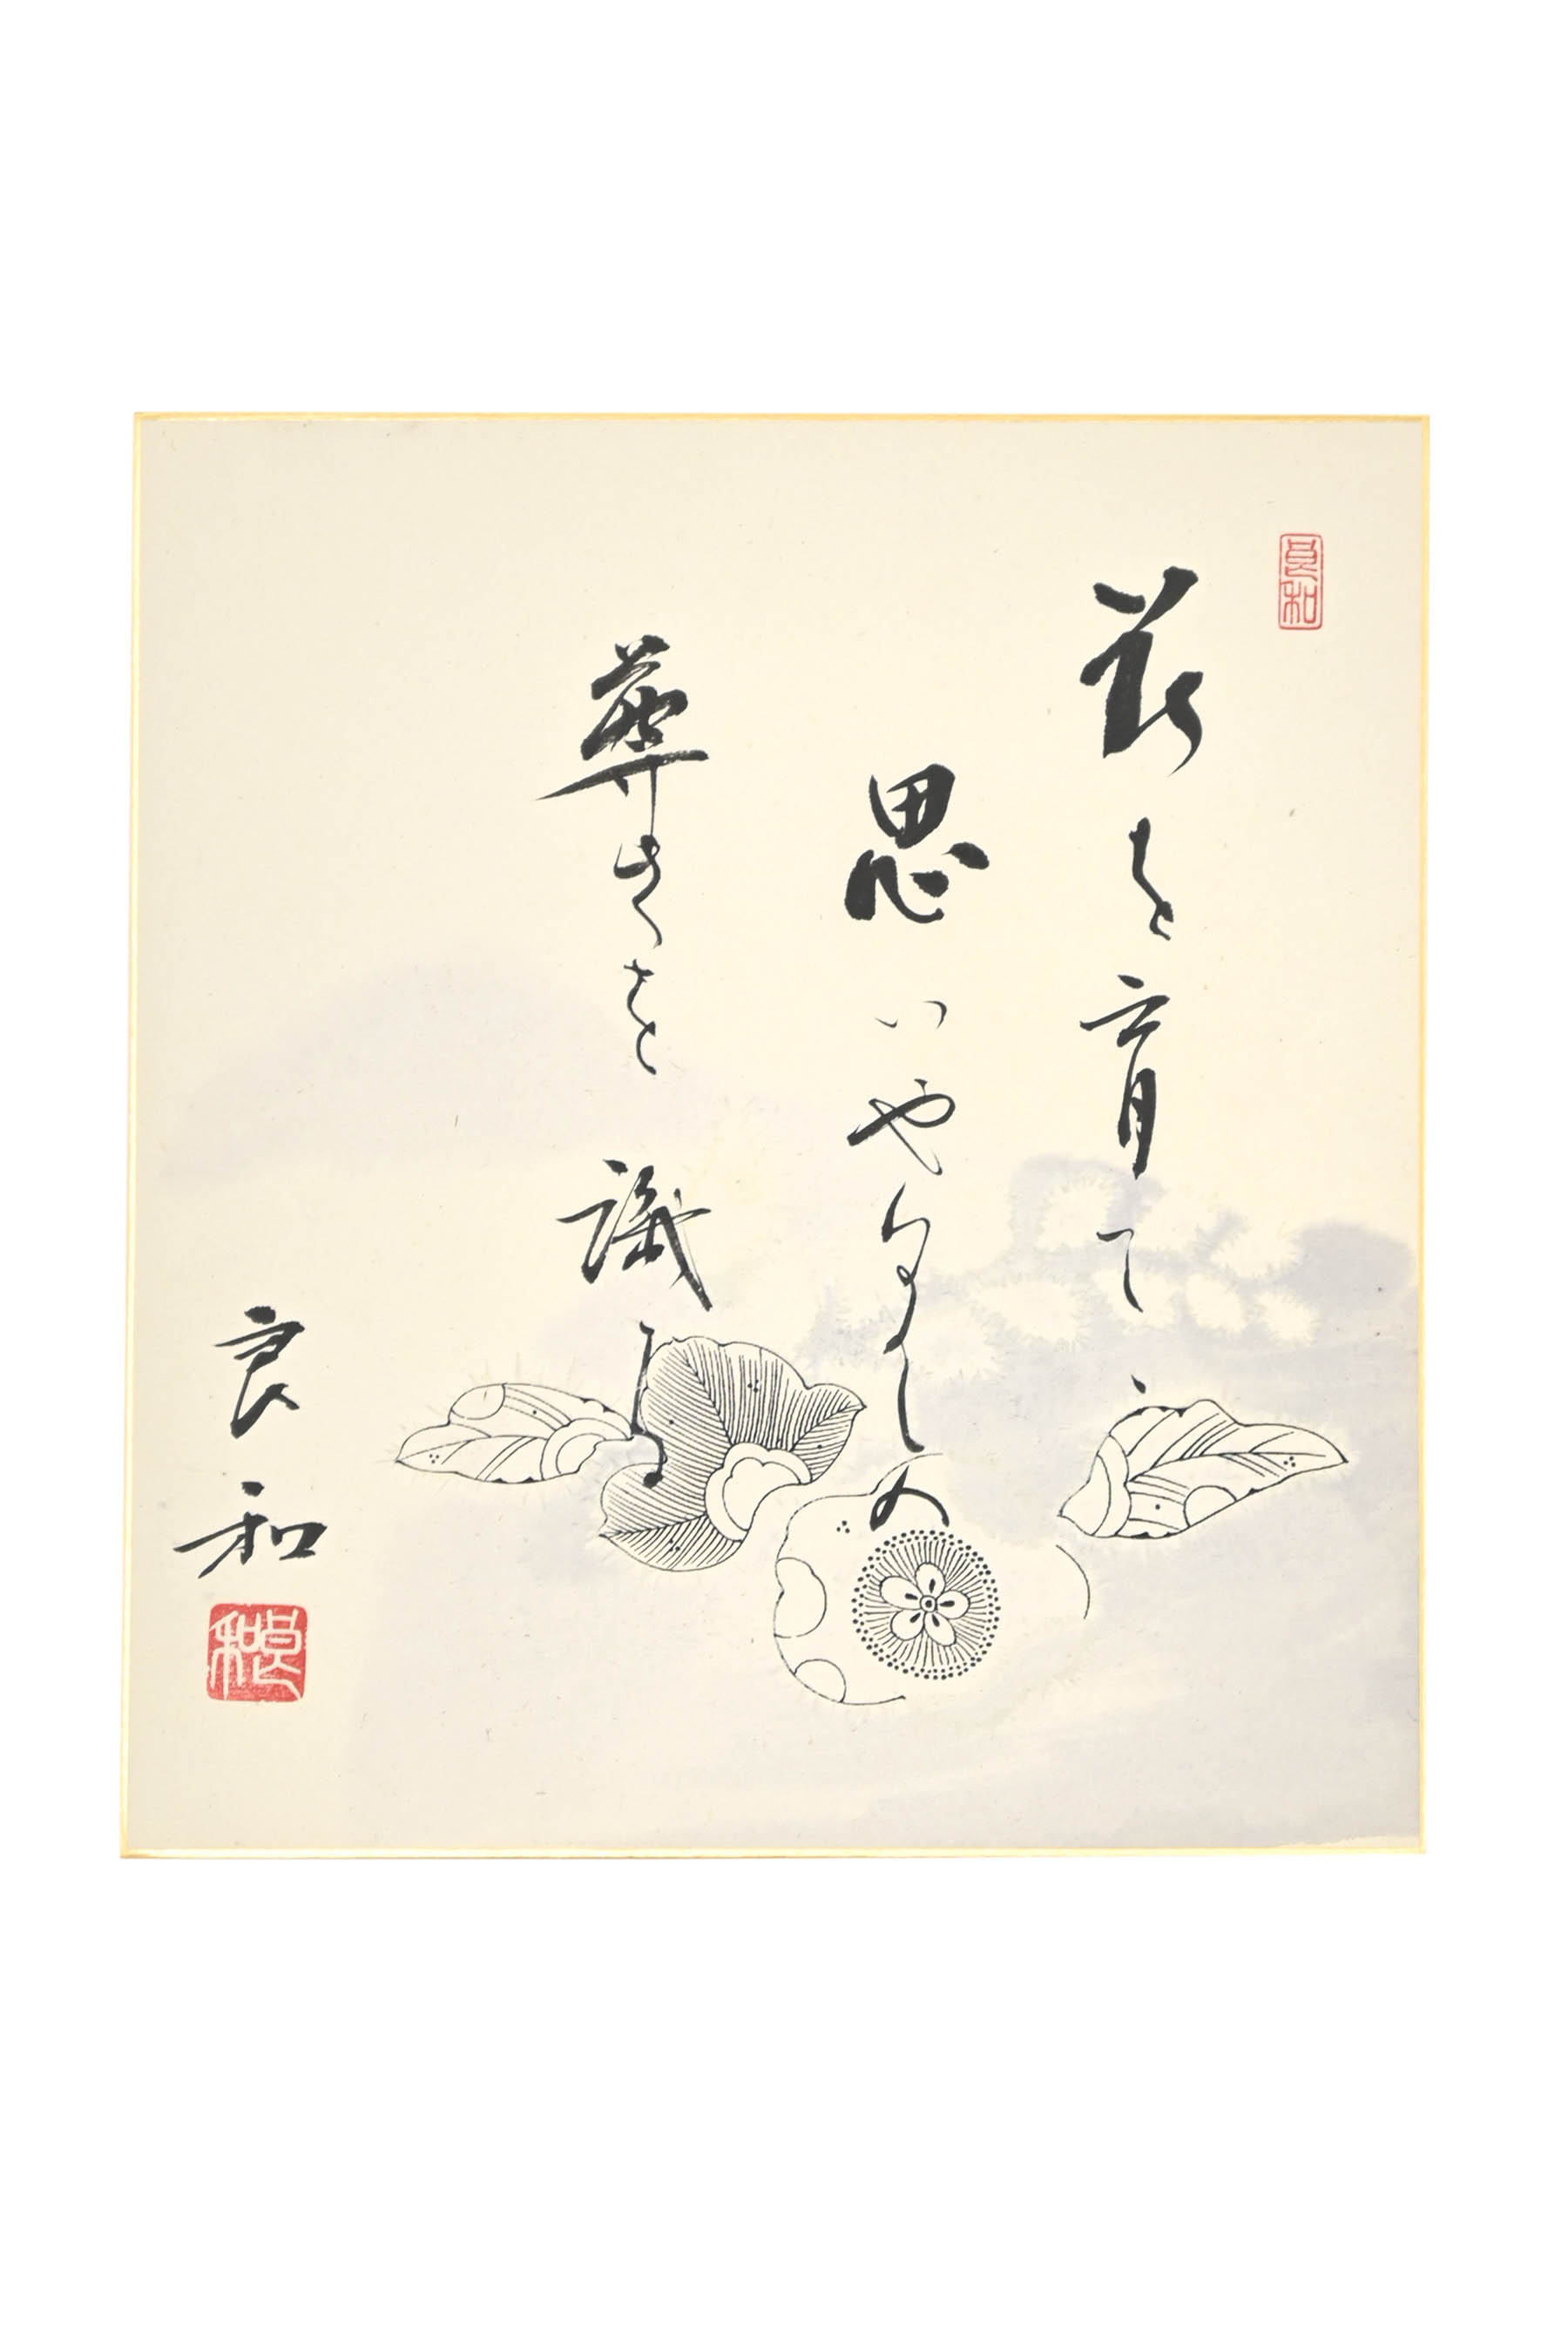 良和
花を育て
思いや
華さくを識る
良和
良和